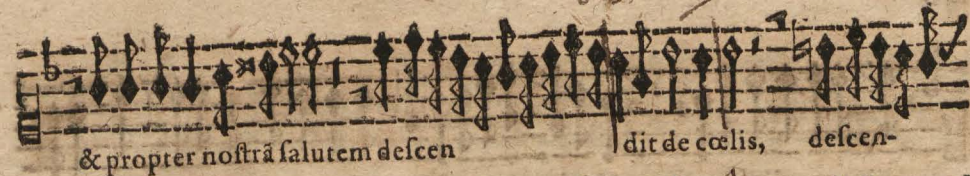 & propter noſtrã ſalutem deſcen dit de cœlis, deſcen-